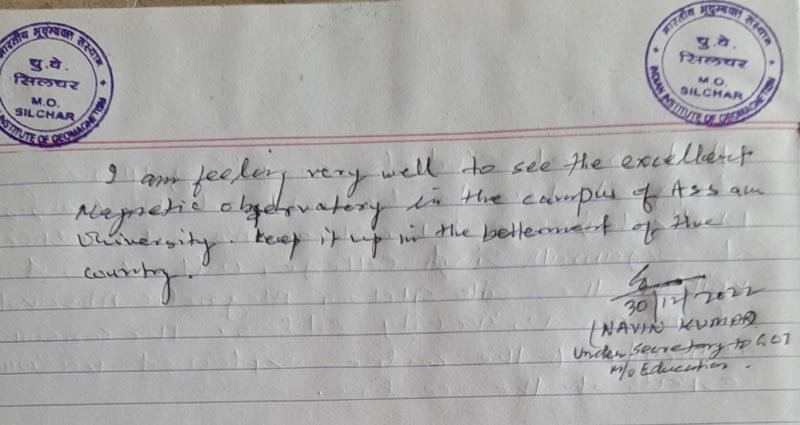 भारतीय भूचुम्बकत्व संस्थान
चु.वे.
सिलचर
M.O.
SILCHAR
INSTITUTE OF GEOMAGNETISM
भारतीय भूचुम्बकत्व संस्थान
चु.वे.
सिलचर
M.O.
SILCHAR
INDIAN INSTITUTE OF GEOMAGNETISM
I am feeling very well to see the excellent
Magnetic observatory in the campus of Assam
University. Keep it up in the betterment of the
country.
30/12/2022
(NAVIN KUMAR)
Under Secretary to GOI
M/o Education.